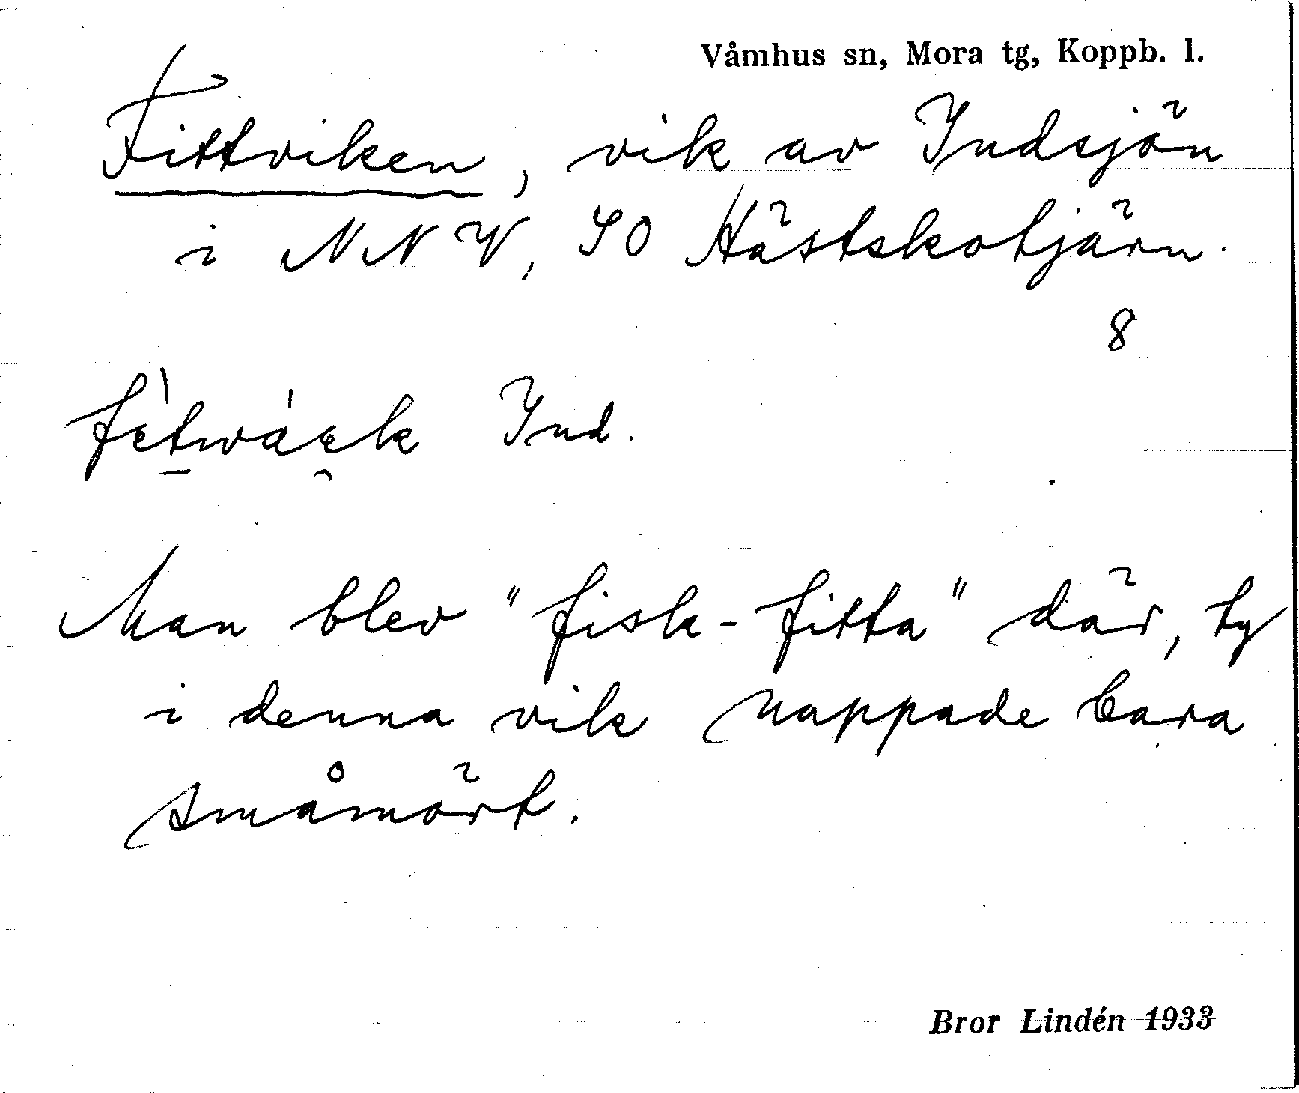 Våmhus sn, Mora tg, Koppb. l.
Fittviken, vik av Indsjön
i NNV, SO Hästskotjärn.
8
Ind.
Man blev "fisk-fitta" där, ty
i denna vik nappade bara
småmört.
Bror Lindén 1933